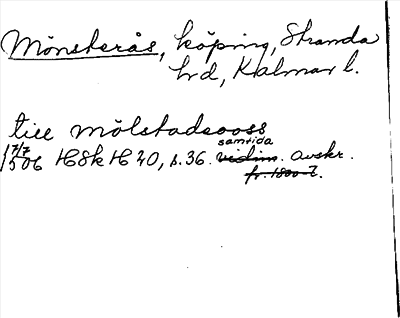 Mönsterås, köping, Stranda
hd, Kalmar l.
till mölstadsooss
7/7
1506 HSk H 20, s. 36. samtida vidim. avskr.
fr. 1800-t.